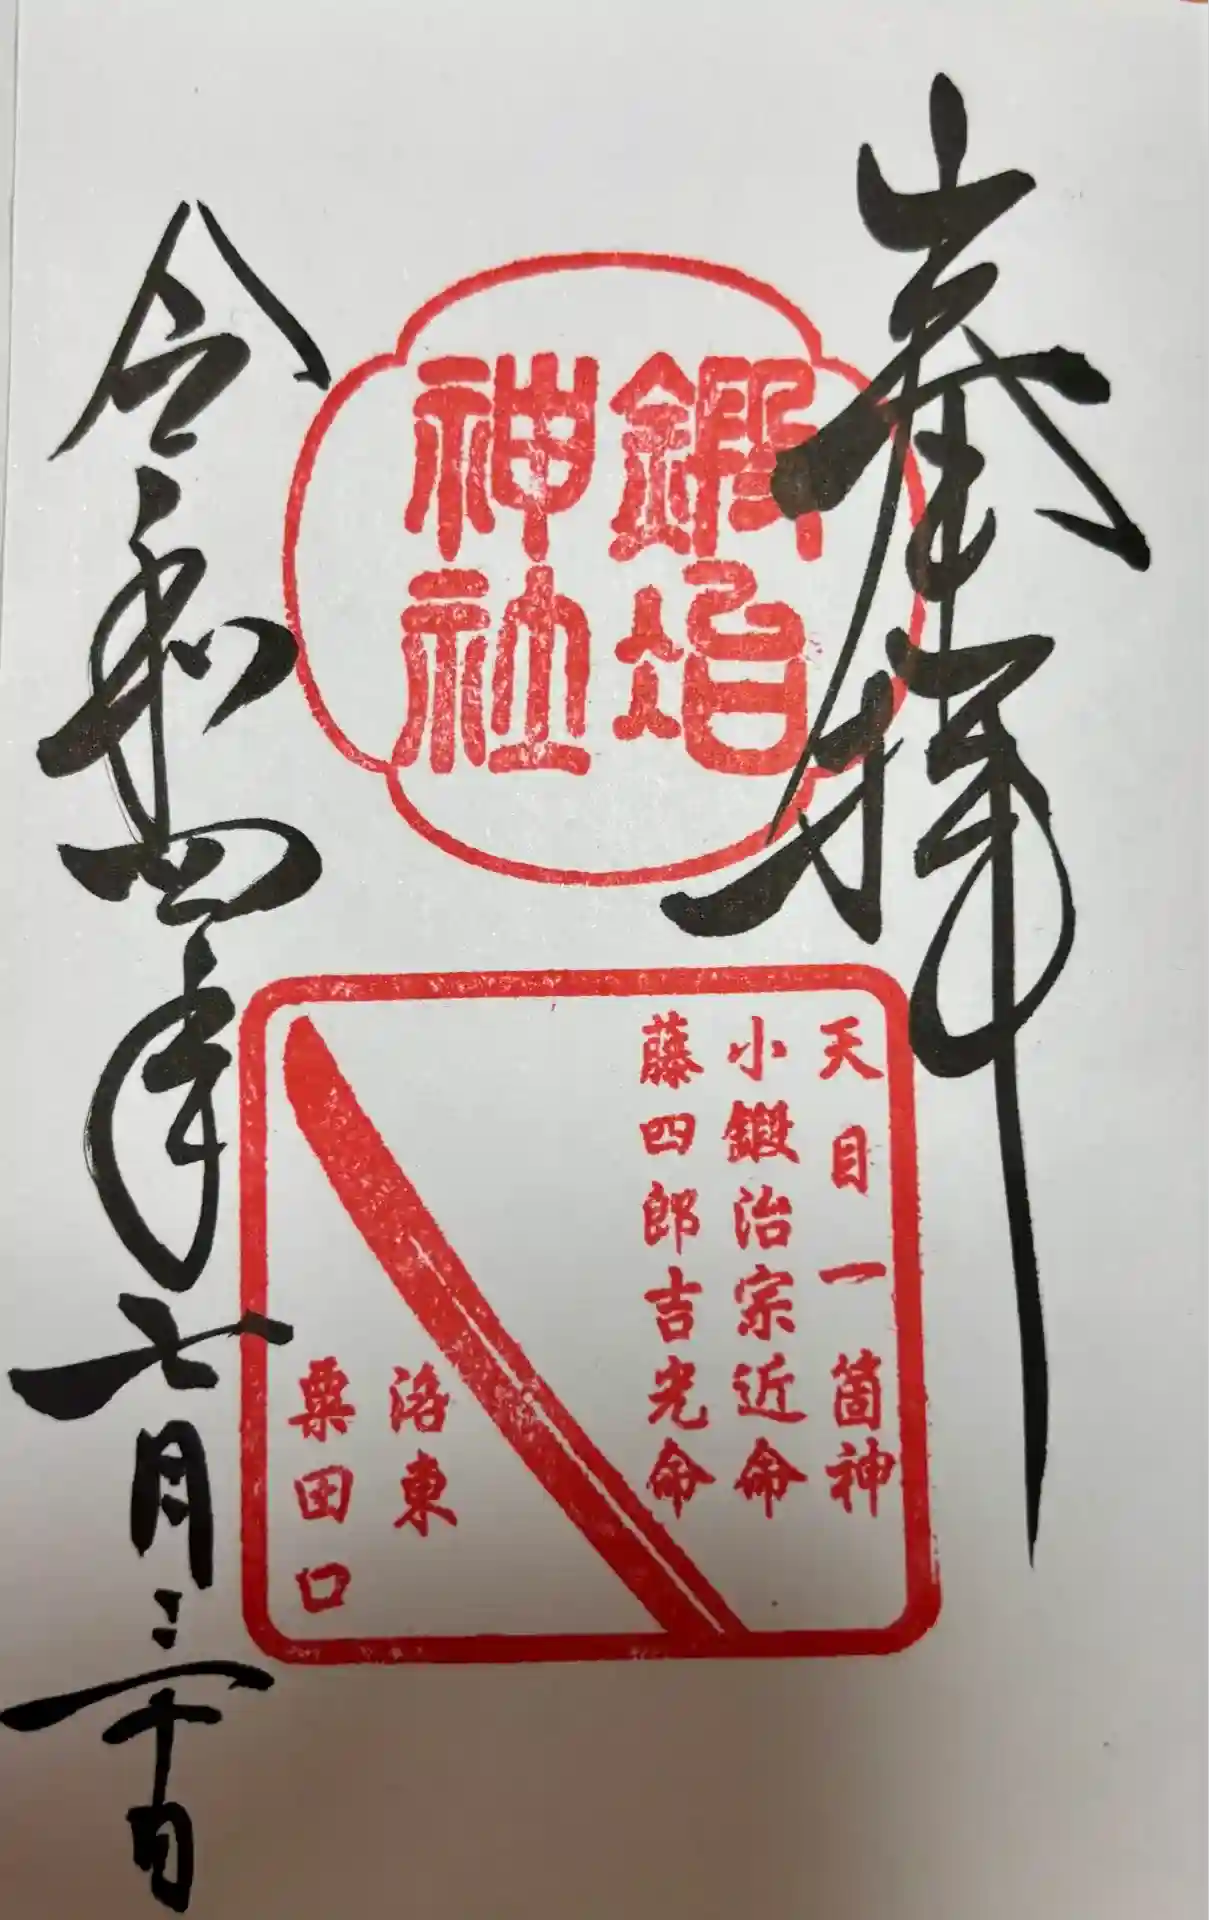 奉拝
鍛冶
神社
天目一箇神
小鍛治宗近命
藤四郎吉光命
洛東
粟田口
令和四年七月三十日